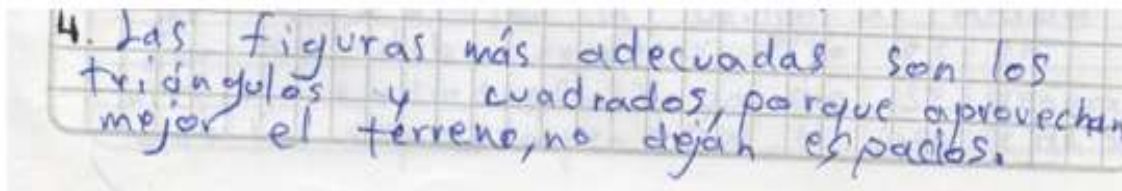 4. Las figuras más adecuadas son los
triángulos y cuadrados, porque aprovechan
mejor el terreno, no dejan espacios.